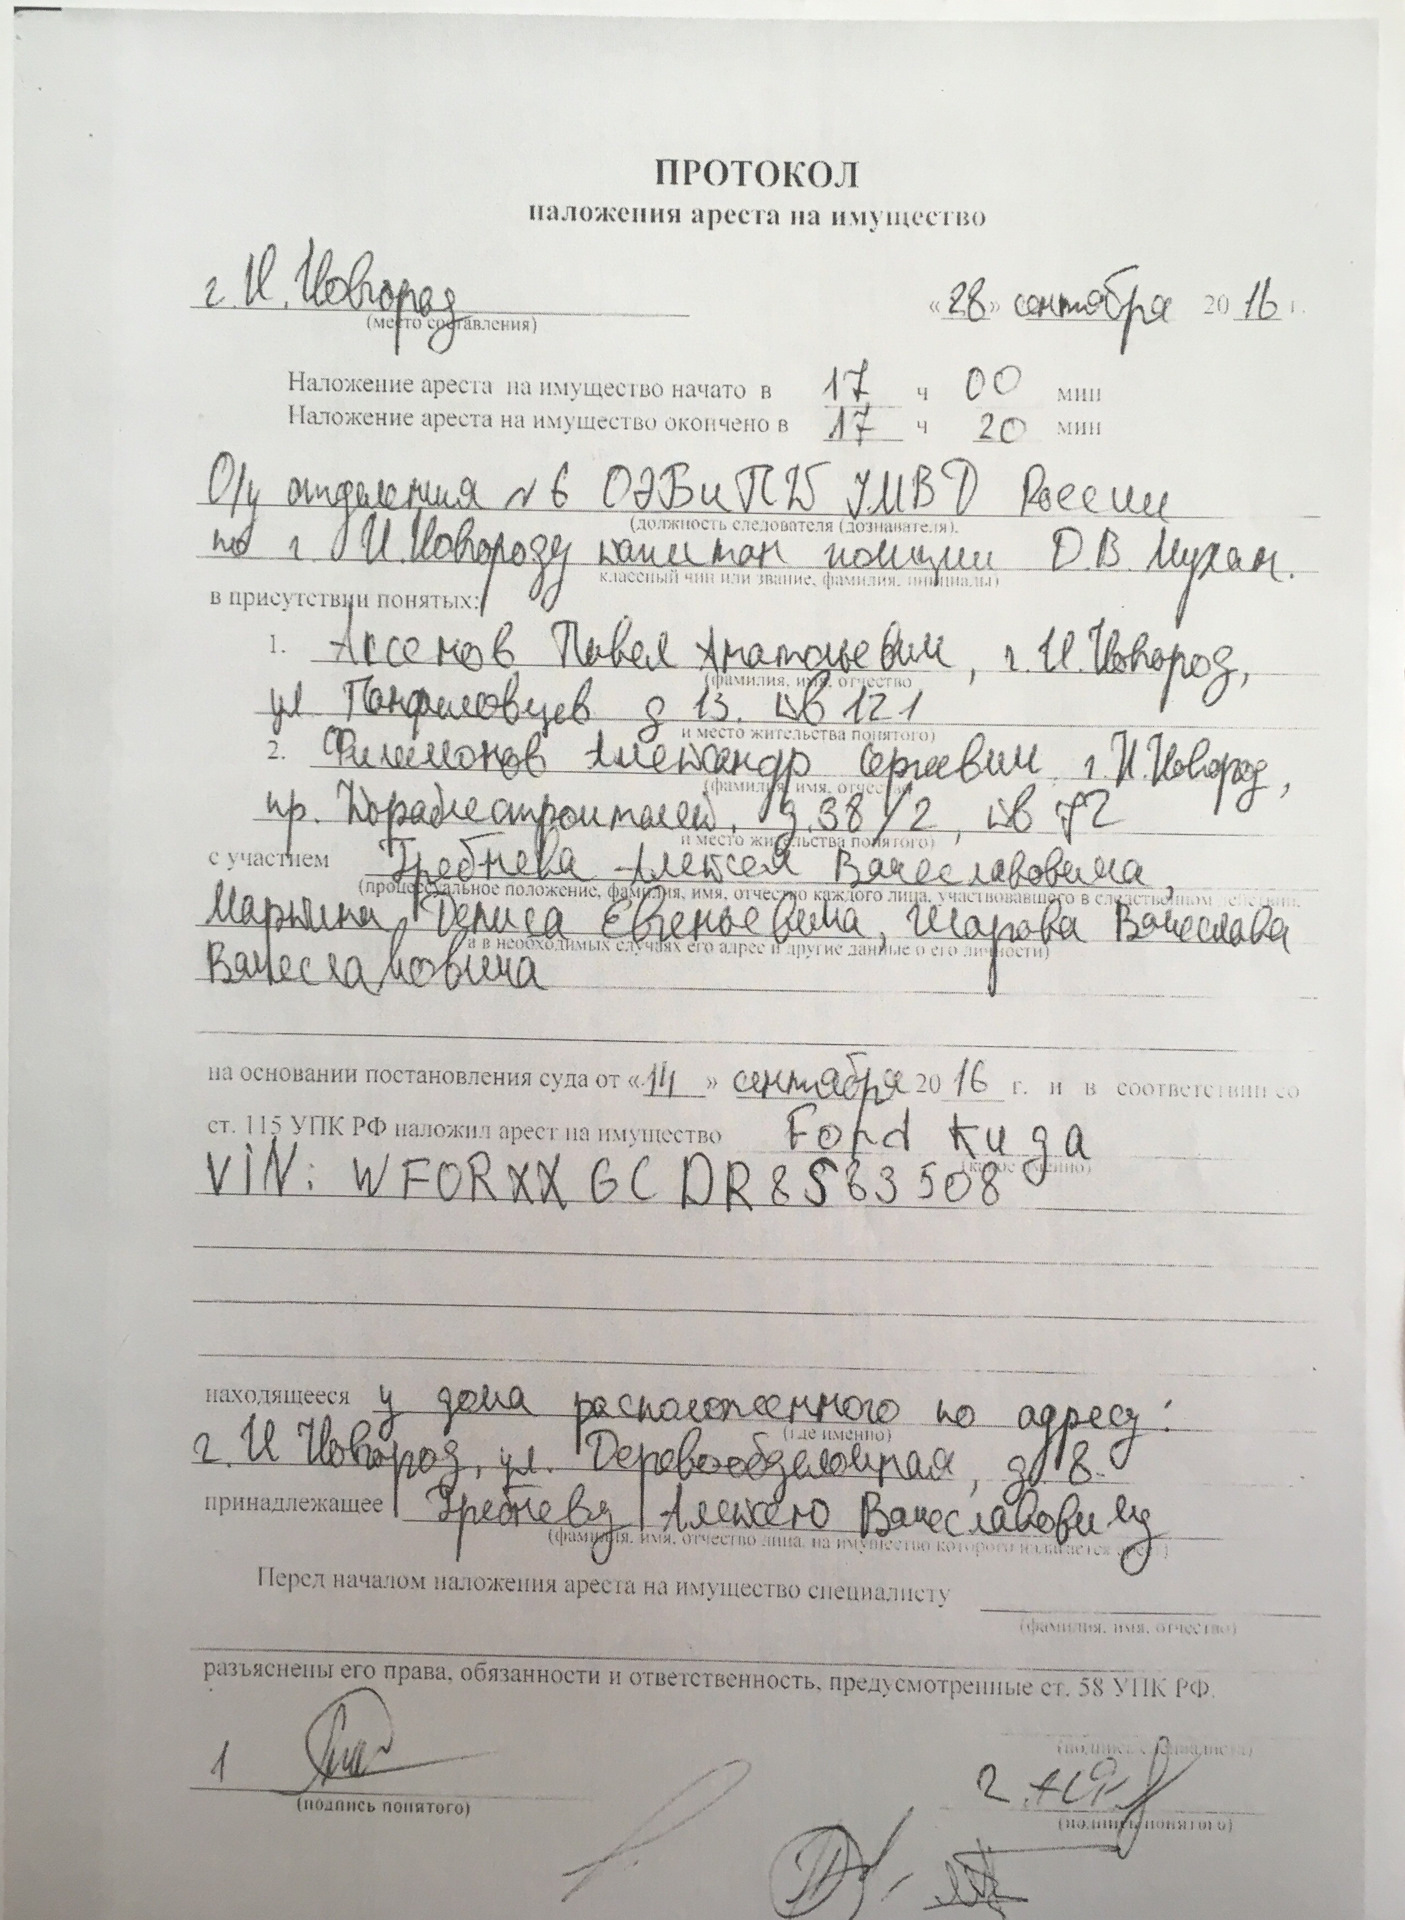 ПРОТОКОЛ
наложения ареста на имущество
г. Н. Новгород «28» сентября 2016 г.
(место составления)
Наложение ареста на имущество начато в 17 ч 00 мин
Наложение ареста на имущество окончено в 17 ч 20 мин
О/у отделения №6 ОЭБиПК УМВД России
(должность следователя (дознавателя),
по г. Н.Новгороду капитан полиции Д.В.
классный чин или звание, фамилия, инициалы)
в присутствии понятых:
1. Аксенов Павел Анатольевич, г.Н.Новгород,
(фамилия, имя, отчество
ул Панфиловцев д 13. кв 121
и место жительства понятого)
2. Филимонов Александр Сергеевич г.Н.Новгород,
(фамилия, имя, отчество
пр. Кораблестроителей, д.38/2, кв 72
и место жительства понятого)
с участием Гребнева Алексея Вячеславовича,
(процессуальное положение, фамилия, имя, отчество каждого лица, участвовавшего в следственном действии,
Дениса Евгеньевича, Шарова Вячеслава
а в необходимых случаях его адрес и другие данные о его личности)
Вячеславовича
на основании постановления суда от «14» сентября 2016 г. и в соответствии со
ст. 115 УПК РФ наложил арест на имущество Ford Куга
(какое именно)
VIN: WFORXXGCDR8S63508
находящееся у дома расположенного по адресу:
(где именно)
г. Н Новгород, ул. Деревообделочная, д 8.
принадлежащее Гребневу Алексею Вячеславовичу
(фамилия, имя, отчество лица, на имущество которого налагается арест)
Перед началом наложения ареста на имущество специалисту
(фамилия, имя, отчество)
разъяснены его права, обязанности и ответственность, предусмотренные ст. 58 УПК РФ.
(подпись специалиста)
1 2.
(подпись понятого) (подпись понятого)